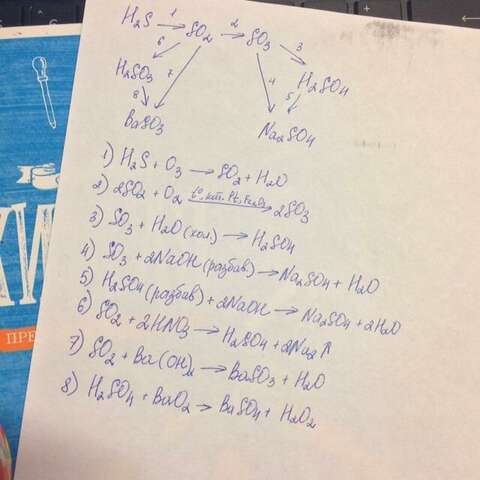 H₂S →¹ SO₂ →² SO₃ 3
6 7 4 5 H₂SO₄
H₂SO₃
8
BaSO₃ Na₂SO₄
1) H₂S + O₃ → SO₂ + H₂O
2) 2SO₂ + O₂ (t°, кат. Pt, Fe₂O₃)→ 2SO₃
3) SO₃ + H₂O (хол) → H₂SO₄
4) SO₃ + 2NaOH (разбав) → Na₂SO₄ + H₂O
5) H₂SO₄ (разбав) + 2NaOH → Na₂SO₄ + 2H₂O
6) SO₂ + 2HNO₃ → H₂SO₄ + 2NO₂↑
7) SO₂ + Ba(OH)₂ → BaSO₃ + H₂O
8) H₂SO₄ + BaO₂ → BaSO₄ + H₂O₂
ПРЕ